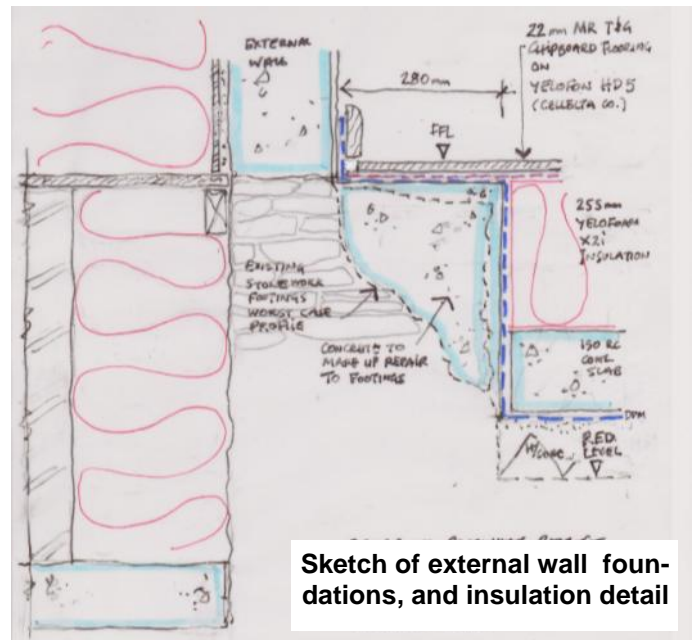 EXTERNAL
WALL
280mm
22mm MR T&G
CHIPBOARD FLOORING
ON
YELOFON HD5
(CELLECTA CO.)
FFL
255mm
YELOFOAM
X2i
INSULATION
EXISTING
STONEWORK
FOOTINGS
WORST CASE
PROFILE
CONCRETE TO
MAKE UP REPAIR
TO FOOTINGS
150 RC
CONC
SLAB
DPM
H/CORE
R.E.D.
LEVEL
Sketch of external wall foun-
dations, and insulation detail